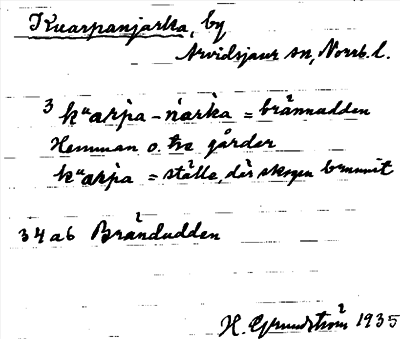 Kuarpanjarka, by
Arvidsjaur sn, Norrb. l.
3 kᵘarpa-ńarka = brännudden
Hemman o. tre gårder
kᵘarpa = ställe, där skogen brunnit
34 a6 Brändudden
H. Grundström 1935